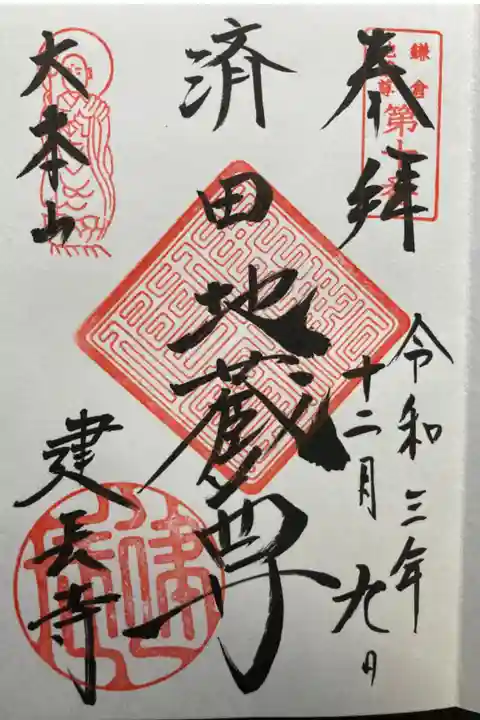 鎌倉
地蔵尊
第十番
奉拝
令和三年
十二月九日
済田地蔵尊
大本山
建長寺